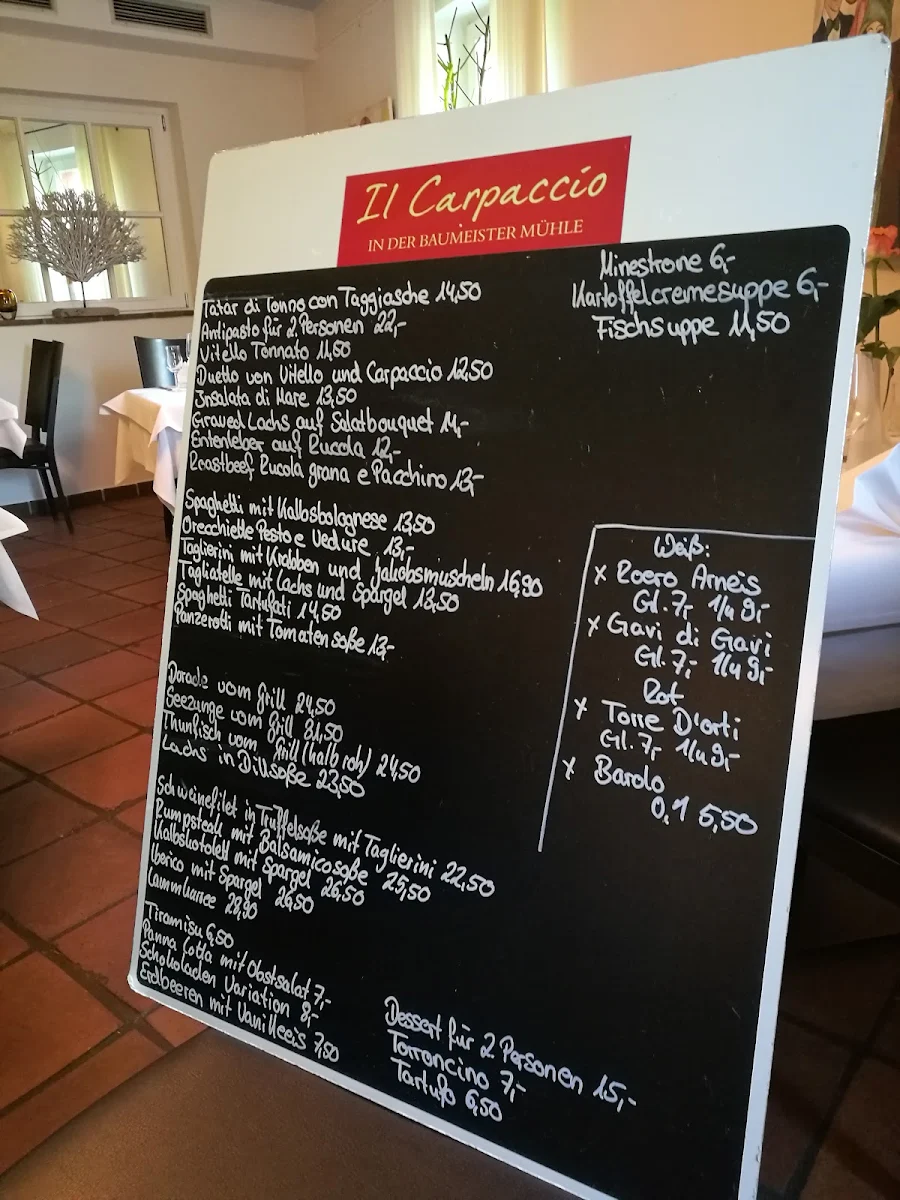 Il Carpaccio
IN DER BAUMEISTER MÜHLE
Tatar di Tonno con Taggiasche 14,50
Antipasto für 2 Personen 22,-
Vitello Tonnato 11,50
Duetto von Vitello und Carpaccio 12,50
Insalata di Mare 13,50
Graved Lachs auf Salatbouquet 14,-
Entenleber auf Rucola 12,-
Roastbeef Rucola grana e Pacchino 13,-
Spaghetti mit Kalbsbolognese 13,50
Orecchiette Pesto e Verdure 13,-
Taglierini mit Krabben und Jakobsmuscheln 16,90
Tagliatelle mit Lachs und Spargel 13,50
Spaghetti Tartufati 14,50
Panzerotti mit Tomatensoße 13,-
Dorade vom Grill 24,50
Seezunge vom Grill 31,50
Thunfisch vom Grill (halb roh) 24,50
Lachs in Dillsoße 23,50
Schweinefilet in Trüffelsoße mit Taglierini 22,50
Rumpsteak mit Balsamicosoße 25,50
Kalbskotelett mit Spargel 26,50
Iberico mit Spargel 26,50
Lammkaree 28,90
Tiramisu 6,50
Panna Cotta mit Obstsalat 7,-
Schokoladen Variation 8,-
Erdbeeren mit Vanilleeis 7,50
Minestrone 6,-
Kartoffelcremesuppe 6,-
Fischsuppe 11,50
Weiß:
x Roero Arneis
Gl. 7,- 1/4 9,-
x Gavi di Gavi
Gl. 7,- 1/4 9,-
Rot
x Torre D'orti
Gl. 7,- 1/4 9,-
x Barolo
0,1 5,50
Dessert für 2 Personen 15,-
Torroncino 7,-
Tartufo 6,50